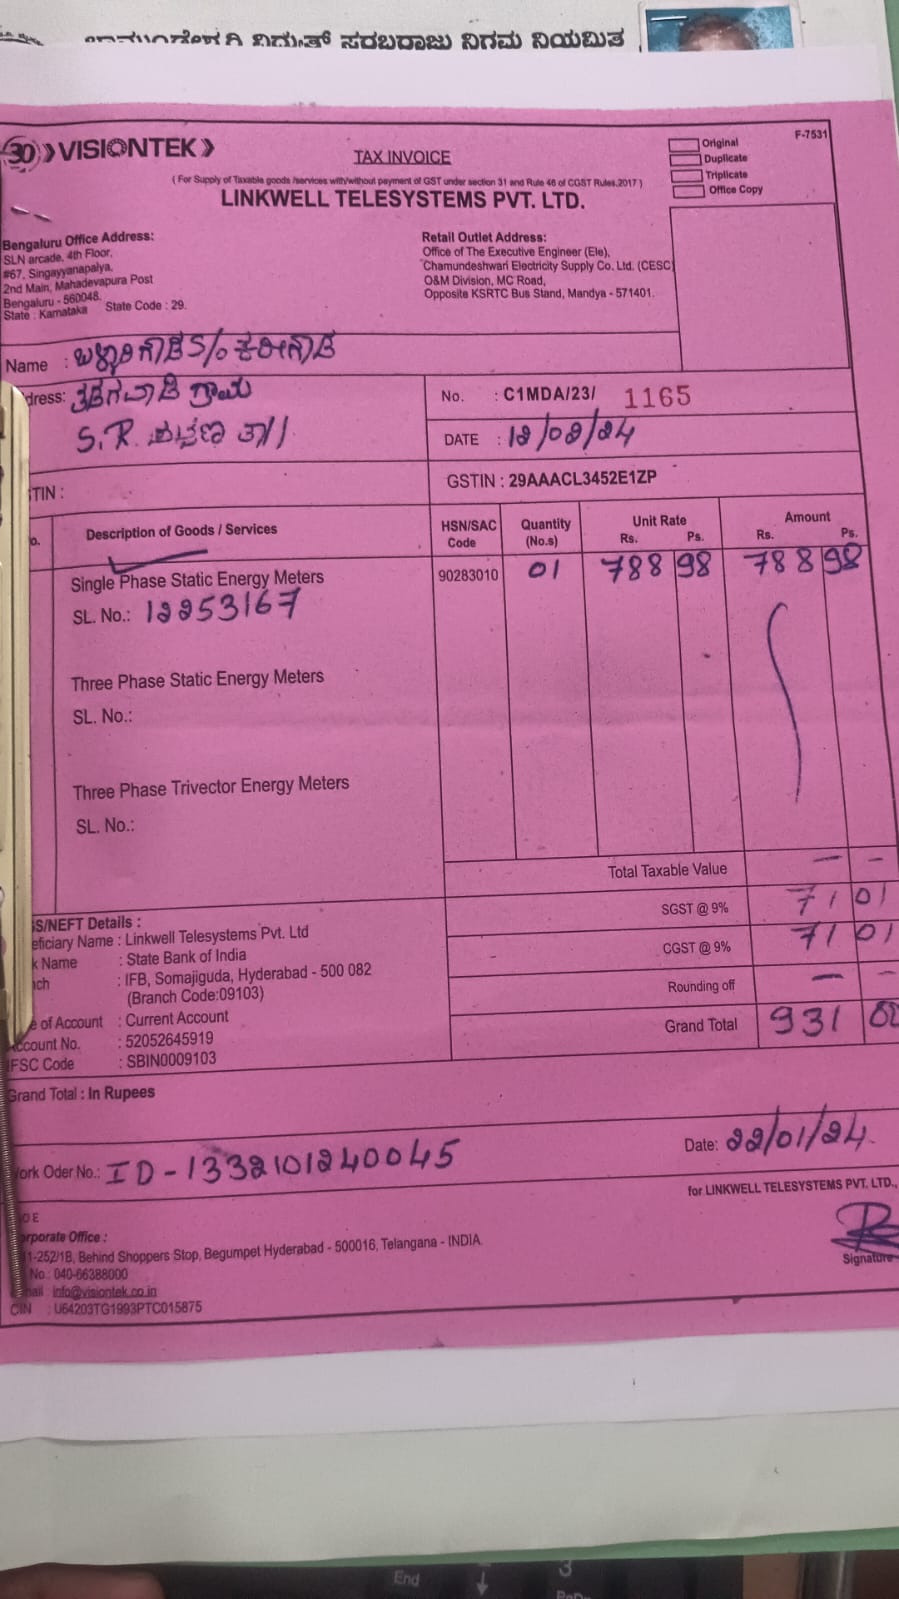 ವಿದ್ಯುತ್ ಸರಬರಾಜು ನಿಗಮ ನಿಯಮಿತ
30 VISIONTEK
TAX INVOICE
Original
Duplicate
Triplicate
Office Copy
F-7531
( For Supply of Taxable goods /services with/without payment of GST under section 31 and Rule 46 of CGST Rules.2017 )
LINKWELL TELESYSTEMS PVT. LTD.
Bengaluru Office Address:
SLN arcade, 4th Floor,
#67, Singayyanapalya,
2nd Main, Mahadevapura Post
Bengaluru - 560048.
State : Karnataka State Code : 29.
Retail Outlet Address:
Office of The Executive Engineer (Ele),
Chamundeshwari Electricity Supply Co. Ltd. (CESC)
O&M Division, MC Road,
Opposite KSRTC Bus Stand, Mandya - 571401.
Name : S/o ಕರೀಗೌಡ
dress: ಗ್ರಾಮ
S.R.
No. : C1MDA/23/ 1165
DATE : 12/02/24
TIN :
GSTIN : 29AAACL3452E1ZP
o. Description of Goods / Services HSN/SAC Code Quantity (No.s) Unit Rate Rs. Ps. Amount Rs. Ps.
Single Phase Static Energy Meters 90283010 01 788 98 788 98
SL. No.: 12253167
Three Phase Static Energy Meters
SL. No.:
Three Phase Trivector Energy Meters
SL. No.:
Total Taxable Value — -
SGST @ 9% 71 01
CGST @ 9% 71 01
Rounding off — -
Grand Total 931 00
GS/NEFT Details :
eficiary Name : Linkwell Telesystems Pvt. Ltd
k Name : State Bank of India
nch : IFB, Somajiguda, Hyderabad - 500 082
(Branch Code:09103)
e of Account : Current Account
ccount No. : 52052645919
IFSC Code : SBIN0009103
Grand Total : In Rupees
ork Oder No.: ID-1332101240045
Date: 22/01/24.
for LINKWELL TELESYSTEMS PVT. LTD.,
Signature
orporate Office :
1-252/1B, Behind Shoppers Stop, Begumpet Hyderabad - 500016, Telangana - INDIA.
No : 040-66388000
mail : info@visiontek.co.in
CIN : U64203TG1993PTC015875
End
3